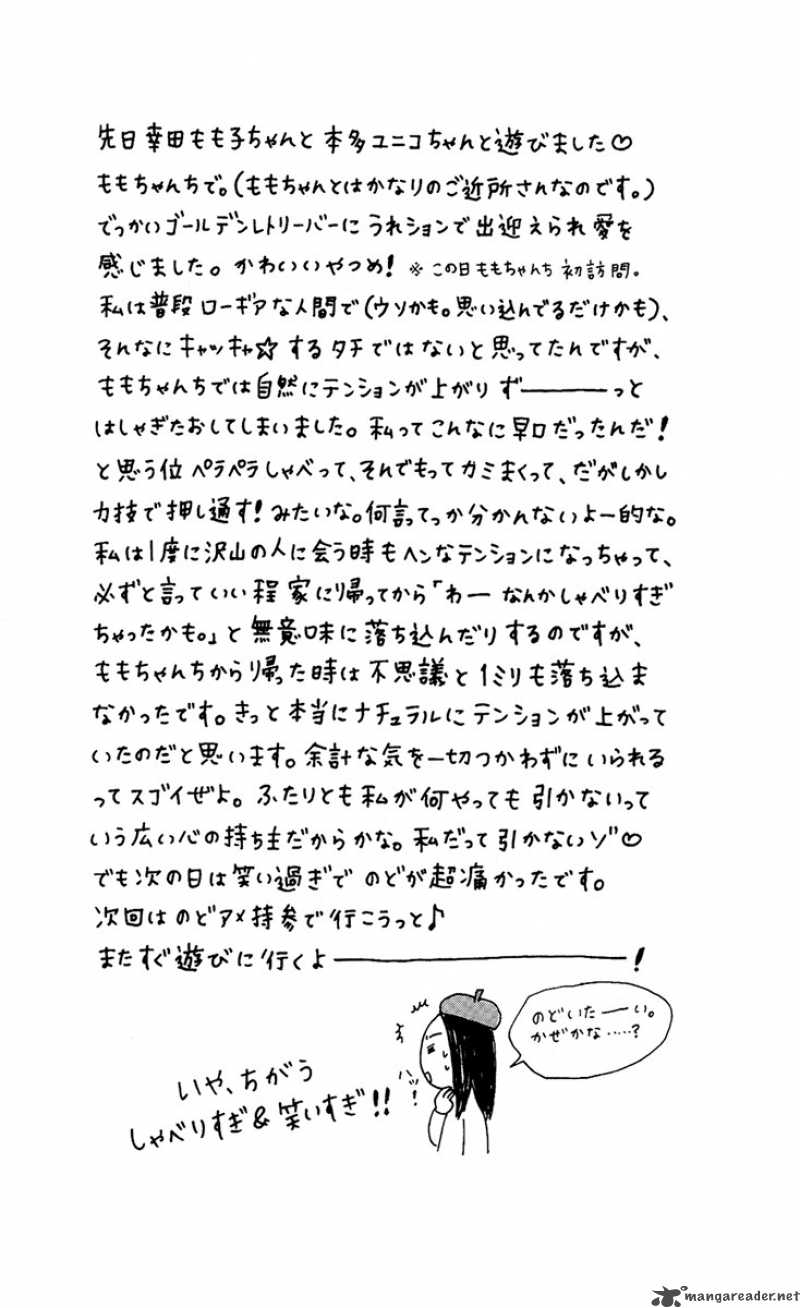 先日幸田もも子ちゃんと本多ユニコちゃんと遊びました♡
ももちゃんちで。(ももちゃんとはかなりのご近所さんなのです。)
でっかいゴールデンレトリーバーにうれションで出迎えられ愛を
感じました。かわいいやつめ! ※この日ももちゃんち初訪問。
私は普段ローギアな人間で(ウソかも。思い込んでるだけかも)、
そんなにキャッキャ☆するタチではないと思ってたんですが、
ももちゃんちでは自然にテンションが上がりずーーーっと
はしゃぎたおしてしまいました。私ってこんなに早口だったんだ!
と思う位ペラペラしゃべって、それでもってカミまくって、だがしかし
力技で押し通す!みたいな。何言ってっか分かんないよー的な。
私は1度に沢山の人に会う時もヘンなテンションになっちゃって、
必ずと言っていい程家に帰ってから「わー なんかしゃべりすぎ
ちゃったかも。」と無意味に落ち込んだりするのですが、
ももちゃんちから帰った時は不思議と1ミリも落ち込ま
なかったです。きっと本当にナチュラルにテンションが上がって
いたのだと思います。余計な気を一切つかわずにいられる
ってスゴイぜよ。ふたりとも私が何やっても引かないって
いう広い心の持ち主だからかな。私だって引かないゾ♡
でも次の日は笑い過ぎでのどが超痛かったです。
次回はのどアメ持参で行こうっと♪
またすぐ遊びに行くよーーーーーー!
のどいたーい。
かぜかな……?
ハッ!
いや、ちがう
しゃべりすぎ&笑いすぎ!!
mangareader.net